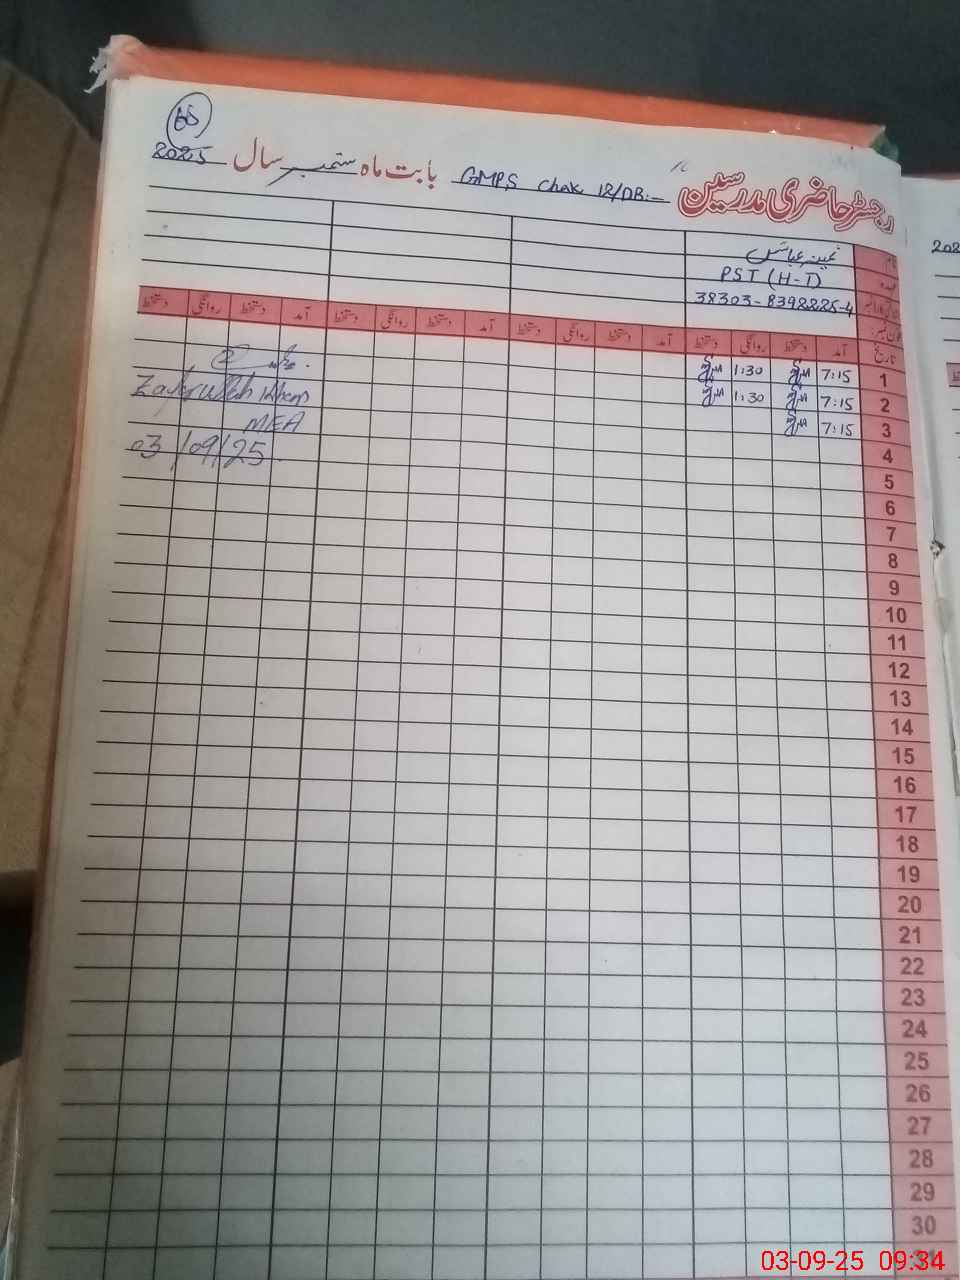 65
رجسٹر حاضری مدرسین GMPS Chak 18/DB:- بابت ماہ ستمبر سال 2025
نام
عہدہ PST (H-T)
38303-8398225-4
فون نمبر:
تاریخ آمد دستخط روانگی دستخط آمد دستخط روانگی دستخط آمد دستخط روانگی دستخط آمد دستخط روانگی دستخط
1 7:15 1:30
2 7:15 1:30
3 7:15
4
5
6
7
8
9
10
11
12
13
14
15
16
17
18
19
20
21
22
23
24
25
26
27
28
29
30
31
Zafarullah Khan
MEA
03/09/25
202
03-09-25 09:34